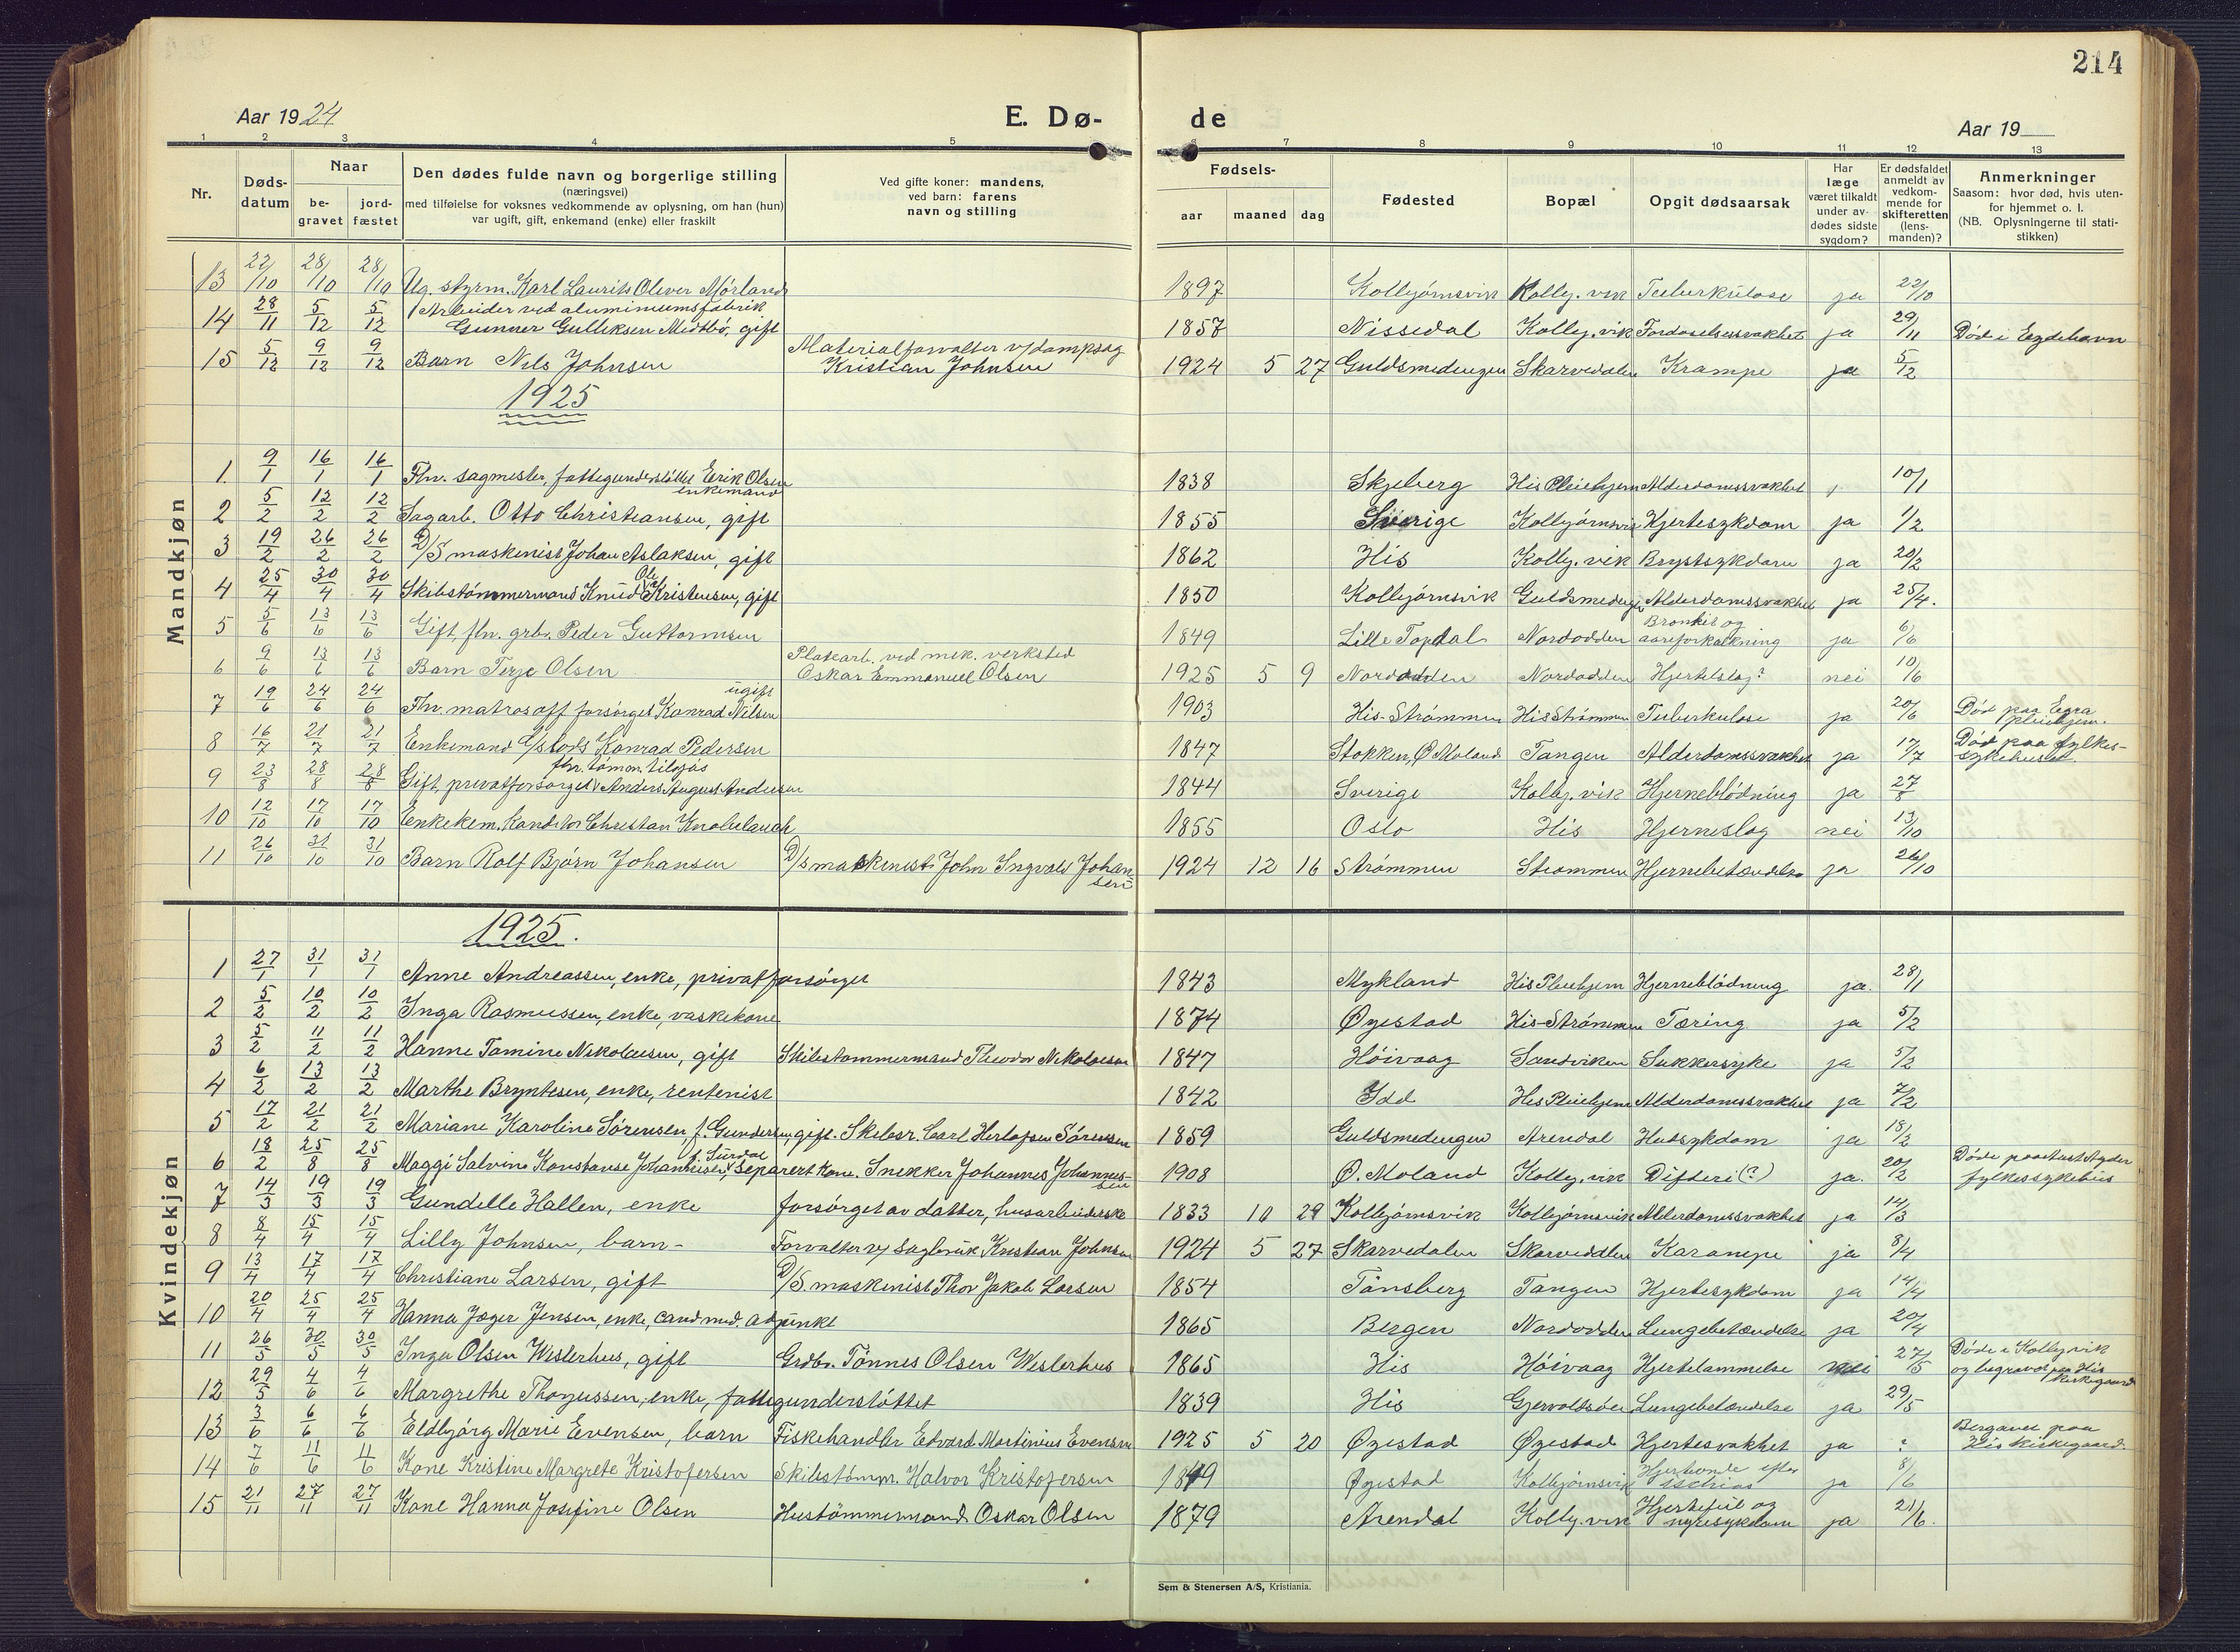 214
Aar 1924
E. Dø-
de
Aar 19
1 2 3 4 5 6 7 8 9 10 11 12 13
Nr.
Døds-
datum
Naar
be-
gravet
jord-
fæstet
Den dødes fulde navn og borgerlige stilling
(næringsvei)
med tilføielse for voksnes vedkommende av oplysning, om han (hun)
var ugift, gift, enkemand (enke) eller fraskilt
Ved gifte koner: mandens,
ved barn: farens
navn og stilling
Fødsels-
aar maaned dag
Fødested
Bopæl
Opgit dødsaarsak
Har
læge
været tilkaldt
under av-
dødes sidste
sygdom?
Er dødsfaldet
anmeldt av
vedkom-
mende for
skifteretten
(lens-
manden)?
Anmerkninger
Saasom: hvor død, hvis uten-
for hjemmet o. l.
(NB. Oplysningerne til stati-
stikken)
Mandkjøn
13 22/10 28/10 28/10 Ug. styrm. Karl Laurits Oliver Mørland 1897 Kolbjørnsvik Kolbj. vik Tuberkulose ja 22/10
14 28/11 5/12 5/12 Arbeider ved aluminiumsfabrik
Gunner Gulliksen Midtbö, gift 1857 Nissedal Kolbj. vik Fordøielsessvakhet ja 29/11 Död i Eydehavn
15 5/12 9/12 9/12 Barn Nils Johnsen Materialforvalter v/dampsag
Kristian Johnsen 1924 5 27 Guldsmedengen Skarvedalen Krampe ja 5/12
1925
1. 9/1 16/1 16/1 Fhv. sagmester, fattigunderstöttet Erik Olsen
enkemand 1838 Skjeberg His Pleiehjem Alderdomssvakhet 10/1
2 5/2 12/2 12/2 Sagarb. Otto Christiansen, gift 1855 Sverige Kolbjørnsvik Hjertesykdom ja 1/2
3 19/2 26/2 26/2 D/S maskinist Johan Aslaksen, gift 1862 His Kolbj. vik Brystsykdom ja 20/2
4 25/4 30/4 30/4 Skibstømmermand Knud Ole Kristensen, gift 1850 Kolbjørnsvik Guldsmedeng. Alderdomssvakhet ja 25/4.
5 5/6 13/6 13/6 Gift, fhv. grb. Peder Guttormsen 1849 Lille Topdal Nordodden Bronkit og
aareforkalkning ja 6/6
6 9/6 13/6 13/6 Barn Terje Olsen Platearb. ved mek. verksted
Oskar Emmanuel Olsen 1925 5 9 Nordodden Nordodden Hjerteslag? nei 10/6
7 19/6 24/6 24/6 Fhv. matros off. forsørget Konrad Nilsen
ugift 1903 His-Strömmen His Strömmen Tuberkulose ja 20/6 Död paa Egra
pleiehjem.
8 16/7 21/7 21/7 Enkemand Konrad Pedersen 1847 Stokken, Ø. Moland Tangen Alderdomssvakhet ja 17/7 Död paa fylkes-
sykehuset
9 23/8 28/8 28/8 fhv. tömm. tilsjös
Gift, privatforsørget, Anders August Andersen 1844 Sverige Kolbj. vik Hjerneblödning ja 27/8
10 12/10 17/10 17/10 Enkekem. Konditor Christan Knobelauch 1855 Oslo His Hjerneslag nei 13/10
11 26/10 31/10 31/10 Barn Rolf Bjørn Johansen D/s maskinist John Ingvald Johan-
sen 1924 12 16 Strömmen Strømmen Hjernebetændelse ja 26/10
Kvindekjøn
1925.
1 27/1 31/1 31/1 Anne Andreassen, enke, privatforsörget 1843 Mykland His Pleiehjem Hjerneblödning ja. 28/1
2 5/2 10/2 10/2 Inga Rasmussen, enke, vaskekone 1874 Øyestad His-Strömmen Tæring ja 5/2
3 5/2 11/2 11/2 Hanne Tomine Nikolaisen, gift Skibstømmermand Theodor Nikolaisen 1847 Höivaag Sandviken Sukkersyke ja 5/2
4 6/2 13/2 13/2 Marthe Bryntesen, enke, rentenist 1842 Idd His Pleiehjem Alderdomssvakhet ja 7/2
5 17/2 21/2 21/2 Mariane Karoline Sørensen, f. Gundersen, gift. Skibsr. Carl Herlofsen Sörensen 1859 Guldsmedengen Arendal Hudsykdom ja 18/2
6 18/2 25/8 25/8 Maggi Salvine Konstanse Johannesen, f. Surdal, Separert Kone. Snekker Johannes Johannes-
sen 1908 Ø. Moland Kolbj. vik Difteri (?) ja. 20/2 Döde paa Aust Agder
fylkessykehus
7 14/3 19/3 19/3 Gundelle Hallen, enke forsörget av datter, husarbeiderske 1833 10 29 Kolbjørnsvik Kolbjørnsvik Alderdomssvakhet ja 14/3
8 8/4 15/4 15/4 Lilly Johnsen, barn - Forvalter v/ sagbruk Kristian Johnsen 1924 5 27 Skarvedalen Skarvedalen Karampe ja 8/4
9 13/4 17/4 17/4 Christiane Larsen, gift D/S. maskinist Thor Jakob Larsen 1854 Tönsberg Tangen Hjertesykdom ja 14/4
10 20/4 25/4 25/4 Hanna Jæger Jensen, enke, cand med. adjunkt 1865 Bergen Nordodden Lungebetændelse ja 20/4
11 26/5 30/5 30/5 Inga Olsen Westerhus, gift Grdbr. Tönnes Olsen Westerhus 1865 His Höivaag Hjertelammelse nei 27/5 Döde i Kolbj.vik
og begravet paa His
kirkegaard
12 29/5 4/6 4/6 Margrethe Thoyussen, enke, fattigunderstöttet 1839 His Gjervoldsöen Lungebetændelse ja 29/5
13 3/6 6/6 6/6 Eldbjörg Marie Evensen, barn Fiskehandler Edvard Martinius Evensen 1925 5 20 Øyestad Øyestad Hjertesvakhet ja ? Begravet paa
His kirkegaard.
14 7/6 11/6 11/6 Kone Kristine Margrete Kristofersen Skibstömm. Halvor Kristofersen 1849 Øyestad Kolbjørnsvik Hjerteonde efter
ischias ja 8/6
15 21/11 27/11 27/11 Kone Hanna Josefine Olsen Hustömmermand Oskar Olsen 1879 Arendal Kolbj. vik Hjertefeil og
nyresykdom ja 21/6.
Sem & Stenersen A/S, Kristiania.